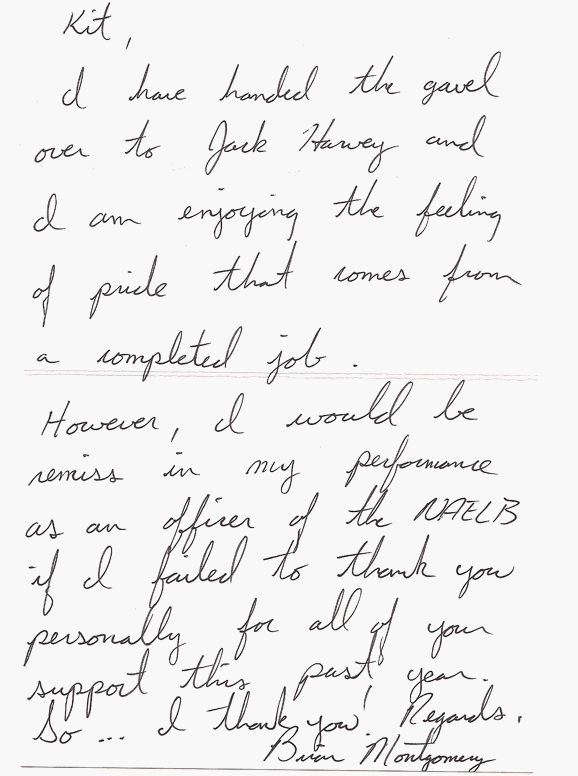 Kit,
I have handed the gavel
over to Jack Harvey and
I am enjoying the feeling
of pride that comes from
a completed job.
However, I would be
remiss in my performance
as an officer of the NAELB
if I failed to thank you
personally for all of your
support this past year.
So... I thank you! Regards,
Brian Montgomery